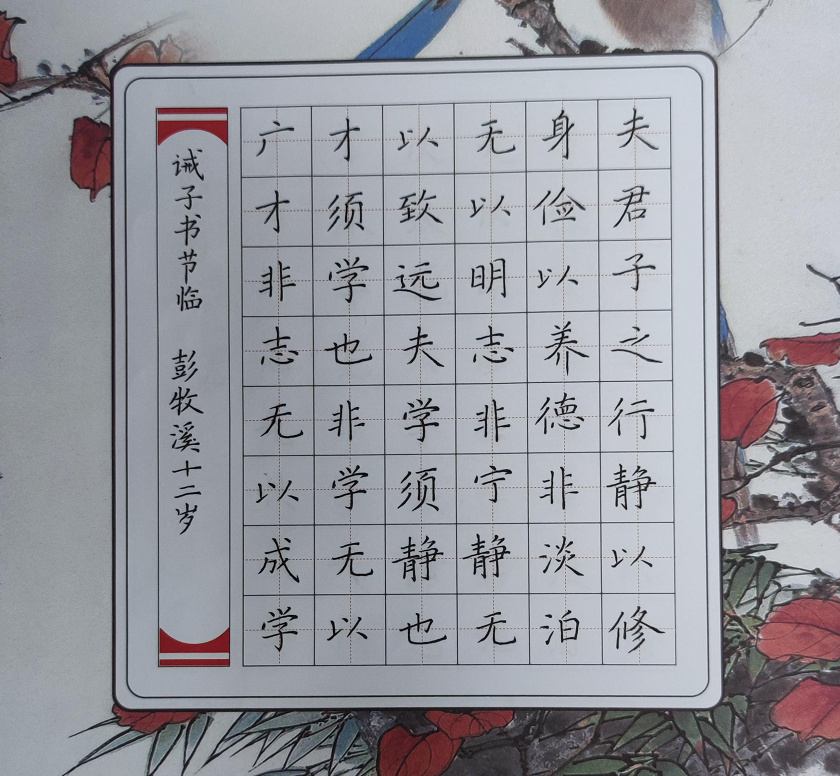 夫君子之行静以修
身俭以养德非淡泊
无以明志非宁静无
以致远夫学须静也
才须学也非学无以
广才非志无以成学
诫子书节临 彭牧溪十二岁